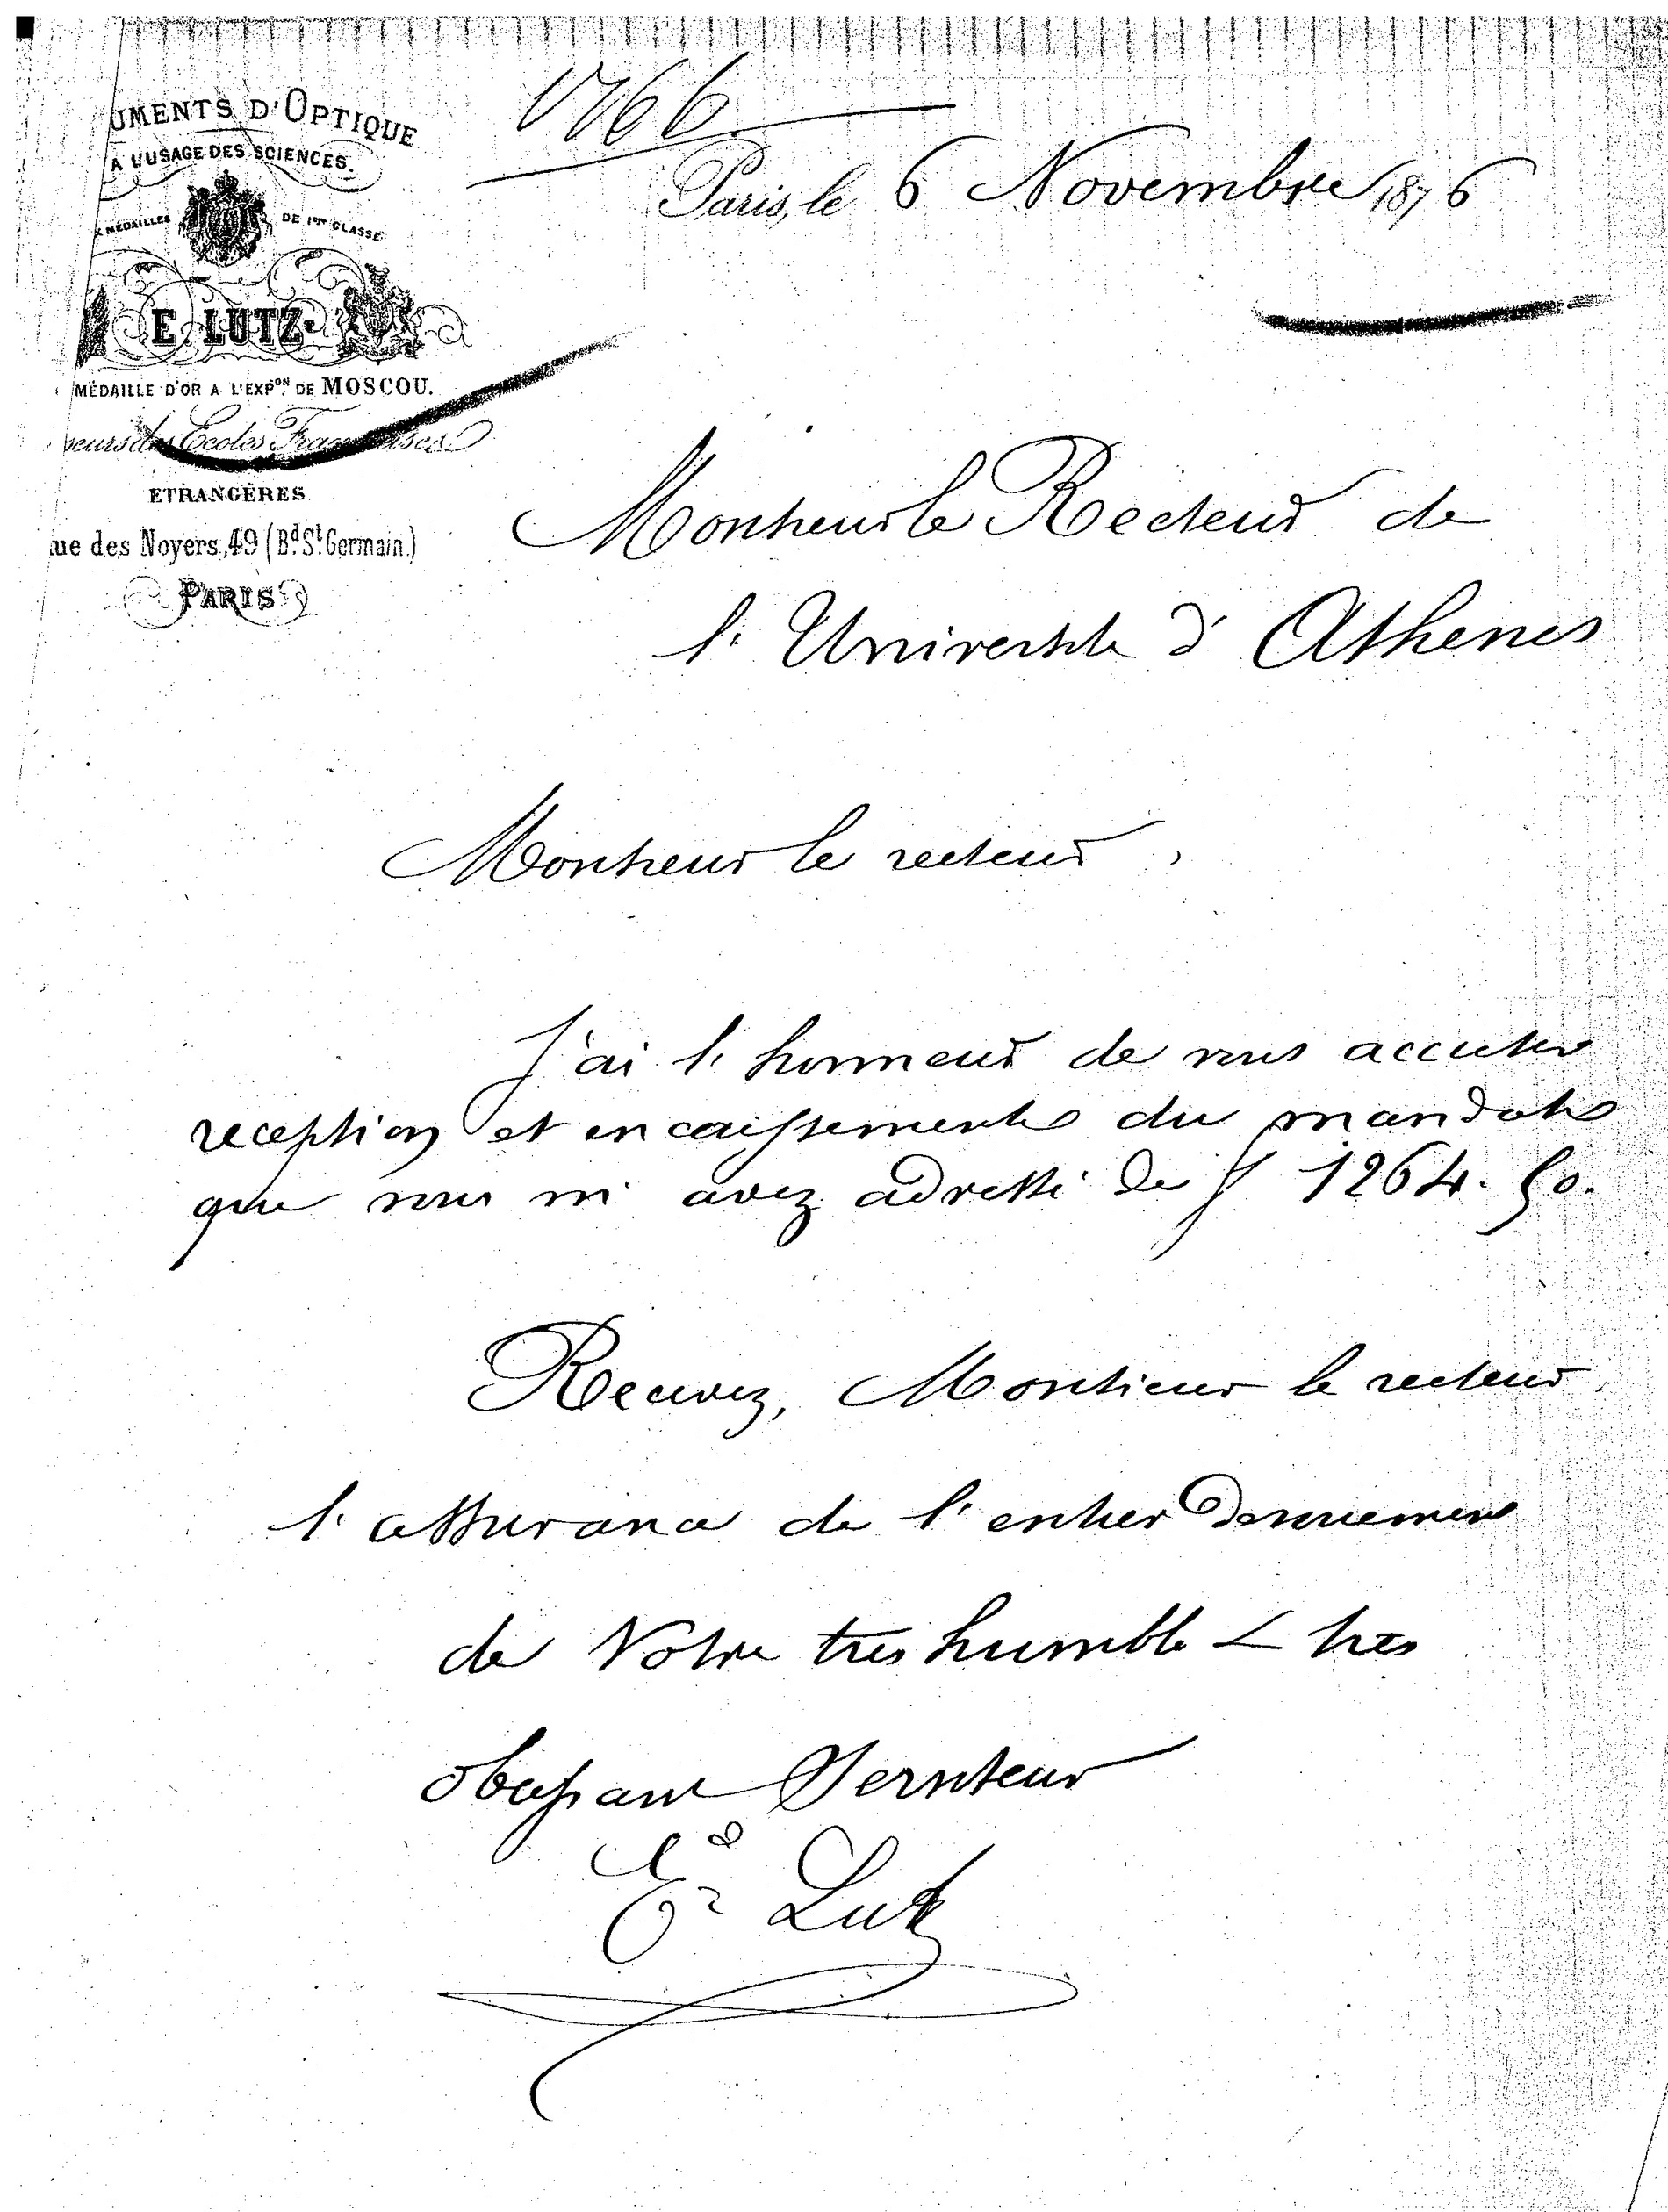 UMENTS D'OPTIQUE
A L'USAGE DES SCIENCES.
MÉDAILLES DE 1ère CLASSE
E. LUTZ
MÉDAILLE D'OR A L'EXPON. DE MOSCOU.
seurs des Ecoles Françaises
ETRANGÈRES
ue des Noyers, 49 (Bd. St. Germain.)
PARIS
1766
Paris, le 6 Novembre 1876
Monsieur le Recteur de
l'Université d'Athenes
Monsieur le recteur,
J'ai l'honneur de vous accuser
reception et encaissement du mandat
que vous m'avez adressé de f 1264.50.
Recevez, Monsieur le recteur
l'assurance de l'entier devouement
de Votre très humble & très
obeissant Serviteur
Ed Lutz